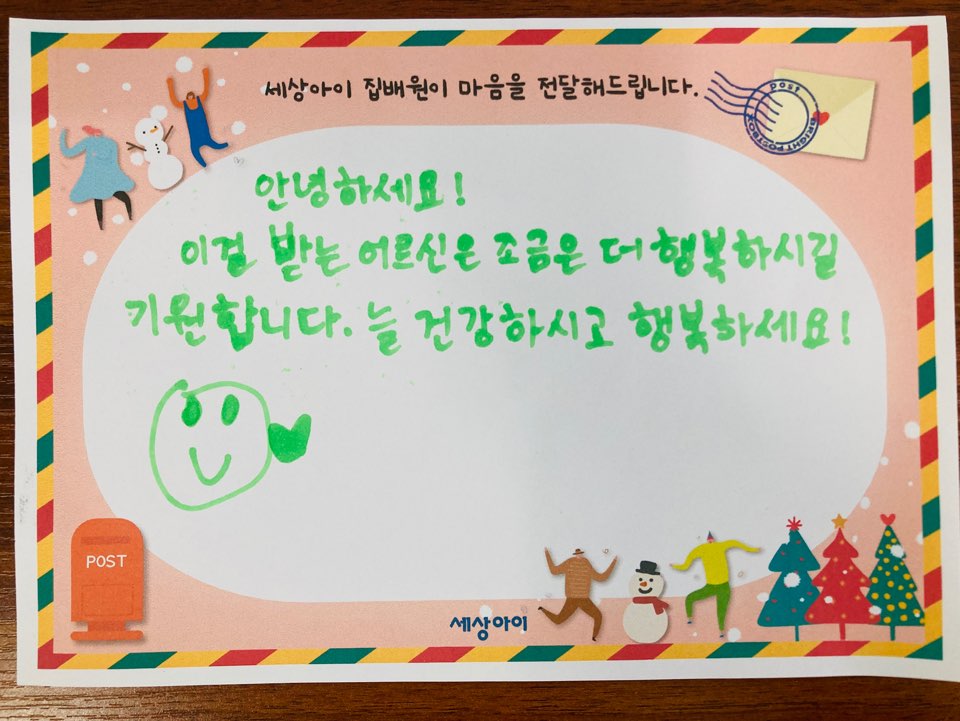 세상아이 집배원이 마음을 전달해드립니다.
POST
BRIGHT POSTBOX
안녕하세요!
이걸 받는 어르신은 조금은 더 행복하시길
기원합니다. 늘 건강하시고 행복하세요!
POST
세상아이